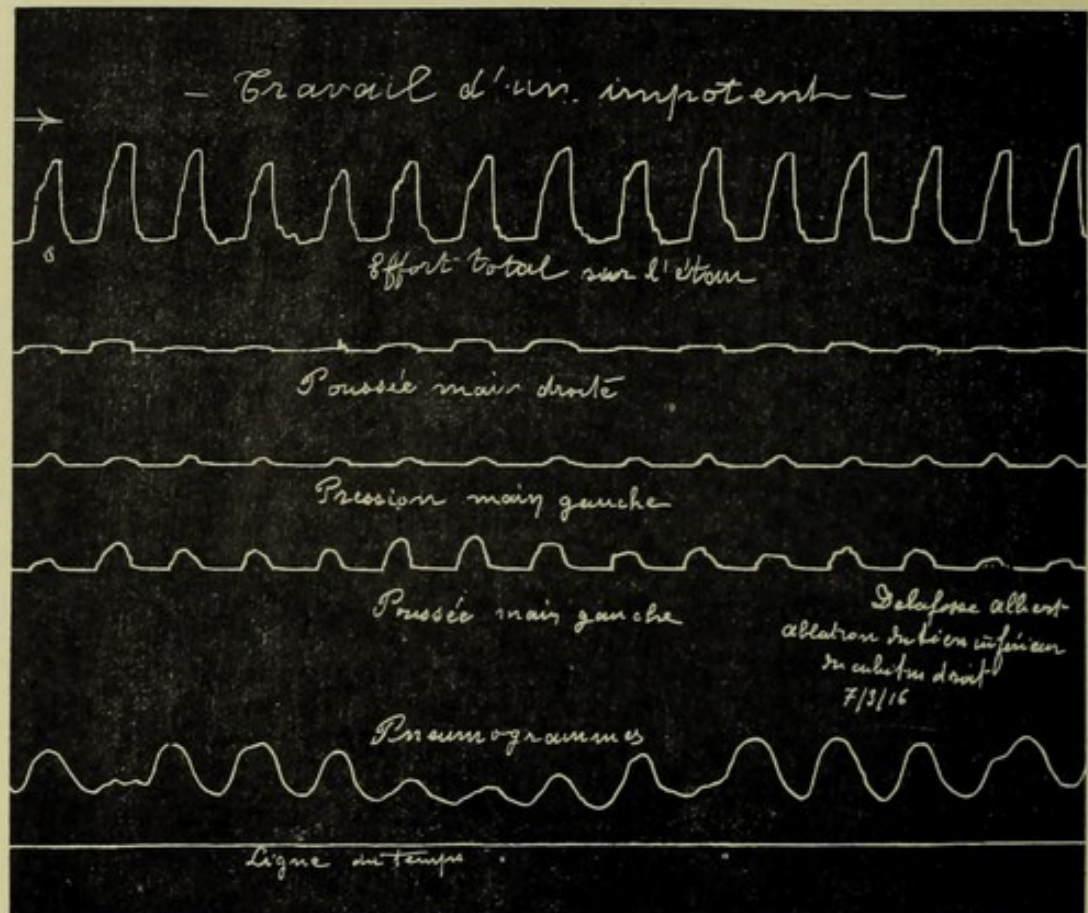 - Travail d'un impotent -
Effort total sur l'étau
Poussée main droite
Pression main gauche
Poussée main gauche
Delafosse Albert
Ablation du tiers inférieur
du cubitus droit
7/3/16
Pneumogrammes
Ligne du temps